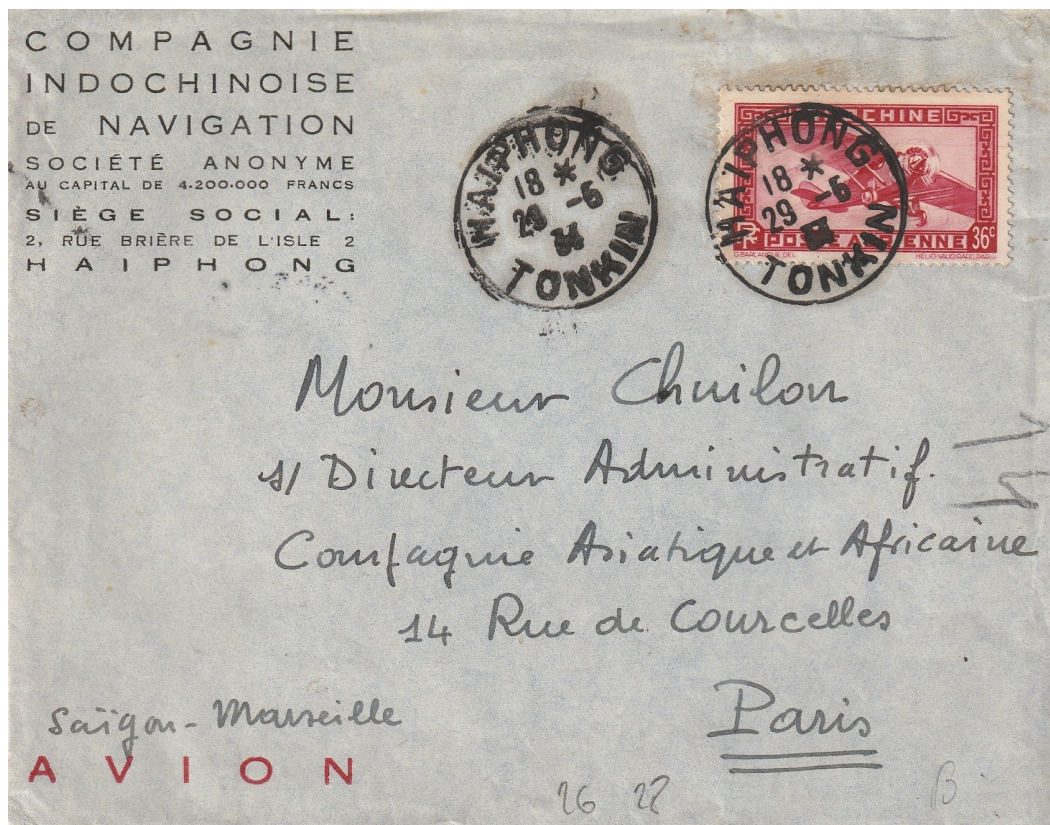 COMPAGNIE
INDOCHINOISE
DE NAVIGATION
SOCIÉTÉ ANONYME
AU CAPITAL DE 4.200.000 FRANCS
SIÈGE SOCIAL:
2, RUE BRIÈRE DE L'ISLE 2
HAIPHONG
HAIPHONG
18 *
29 -6
TONKIN
CHINE
HAIPHONG
18 *
29 -6
TONKIN
POSTE AERIENNE 36c
G.BARLANGUE.DEL. HELIO-VAUGIRARD.PARIS
Monsieur Chuilon
s/ Directeur Administratif.
Compagnie Asiatique et Africaine
14 Rue de Courcelles
Paris
Saïgon - Marseille
AVION
26 28
B